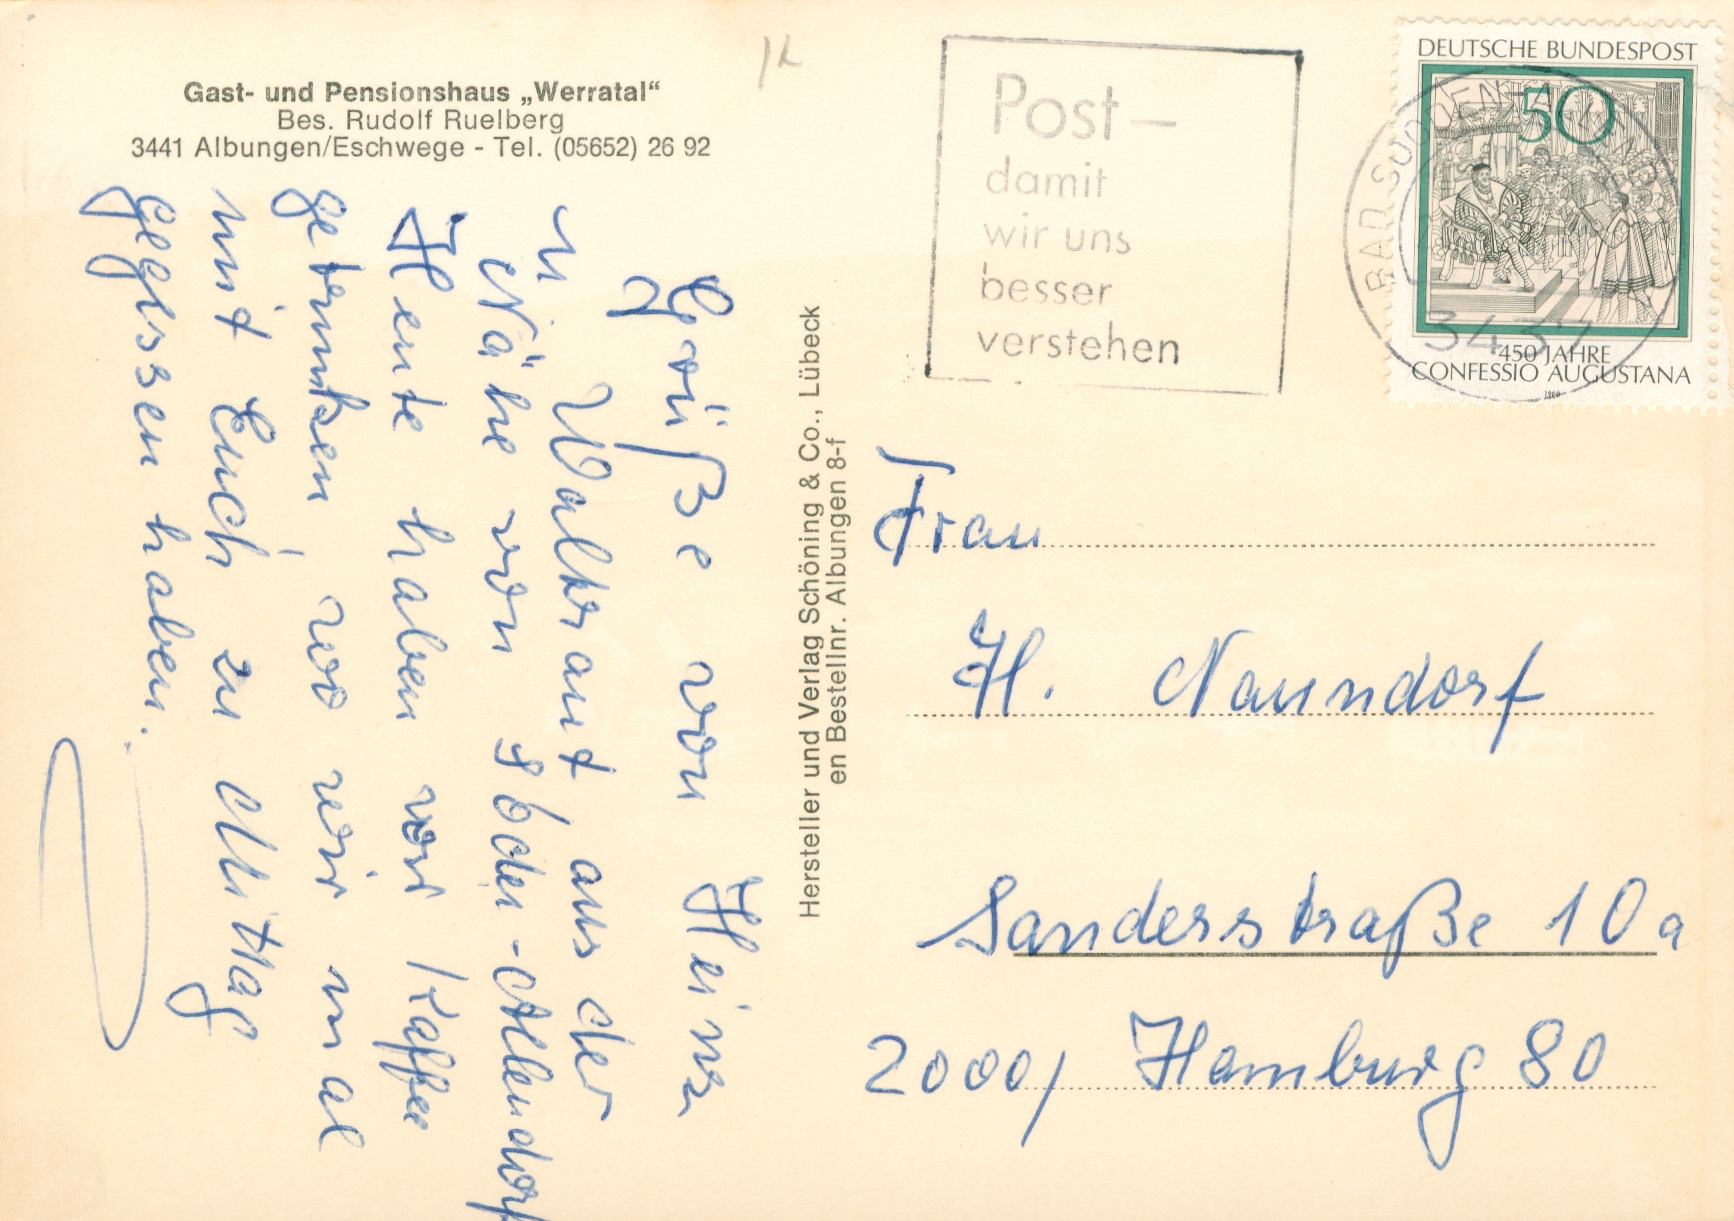 Gast- und Pensionshaus „Werratal“
Bes. Rudolf Ruelberg
3441 Albungen/Eschwege - Tel. (05652) 26 92
Grüße von Heinz
u Waltraut aus der
Nähe von Soden-Allendorf
Heute haben wir Kaffee
getrunken, wo wir mal
mit Euch zu Mittag
gegessen haben.
Hersteller und Verlag Schöning & Co., Lübeck
en Bestellnr. Albungen 8-f
Post –
damit
wir uns
besser
verstehen
DEUTSCHE BUNDESPOST
50
450 JAHRE
CONFESSIO AUGUSTANA
BAD SOODEN-
3437
Frau
H. Naundorf
Sandersstraße 10a
2000/ Hamburg 80